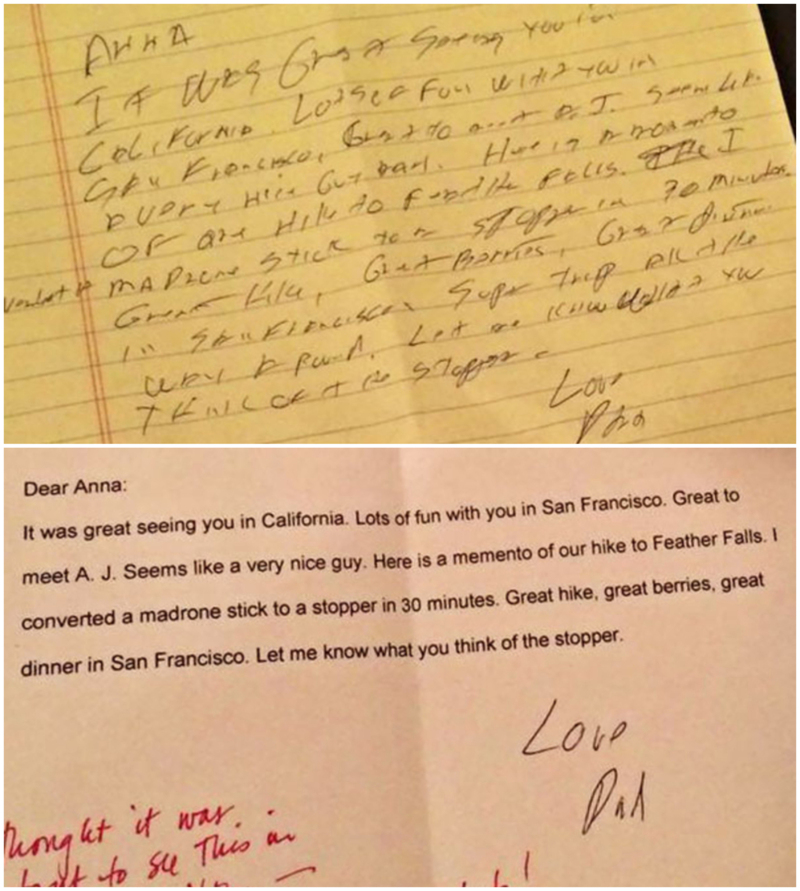 ANNA
It was Great Seeing You in
California. Lots of Fun with you in
San Francisco, Great to meet A.J. Seems like
a very nice Guy. Here is a memento
OF our Hike to Falls. I
MADRONE STICK to a STOPPER in 30 minutes.
Great Hike, Great Berries, Great dinner
in San Francisco. Super trip all the
way. Let me know what you
THINK OF THE STOPPER.
Love
Dad
Dear Anna:
It was great seeing you in California. Lots of fun with you in San Francisco. Great to
meet A. J. Seems like a very nice guy. Here is a memento of our hike to Feather Falls. I
converted a madrone stick to a stopper in 30 minutes. Great hike, great berries, great
dinner in San Francisco. Let me know what you think of the stopper.
Love
Dad
thought it was
to see This in